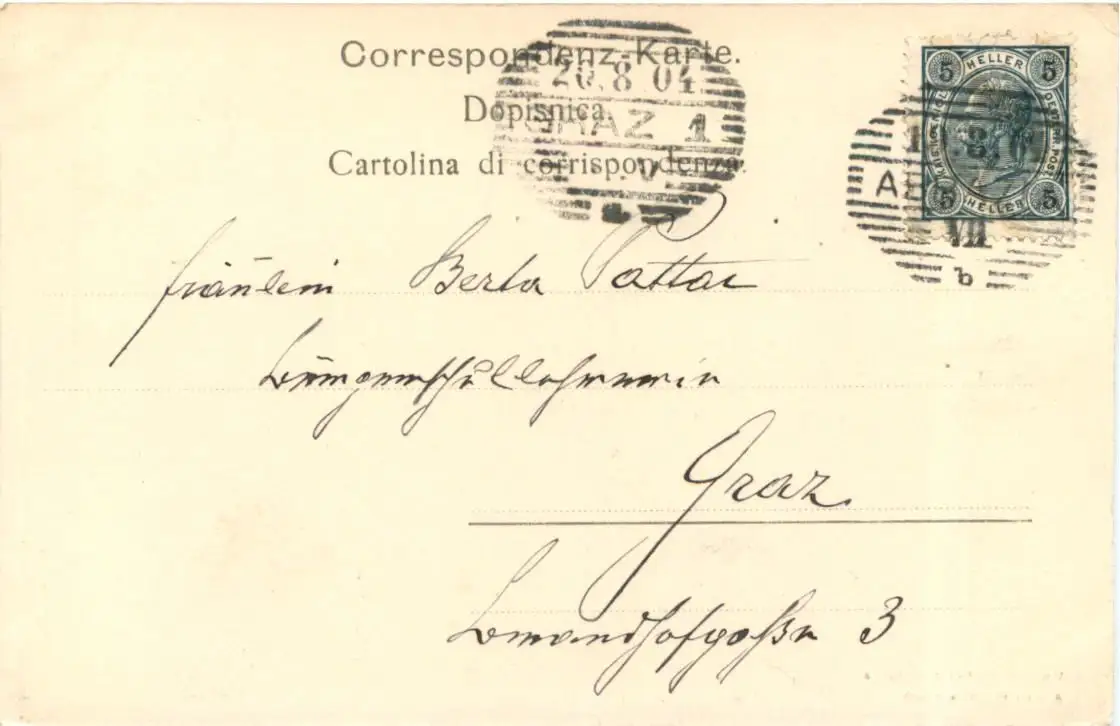 Correspondenz-Karte.
Dopisnica.
Cartolina di corrispondenza.
20.8 04
GRAZ 1
5 HELLER 5
5 HELLER 5
VII
b
Fräulein Berta Pattai
Bürgerschullehrerin
Graz
3